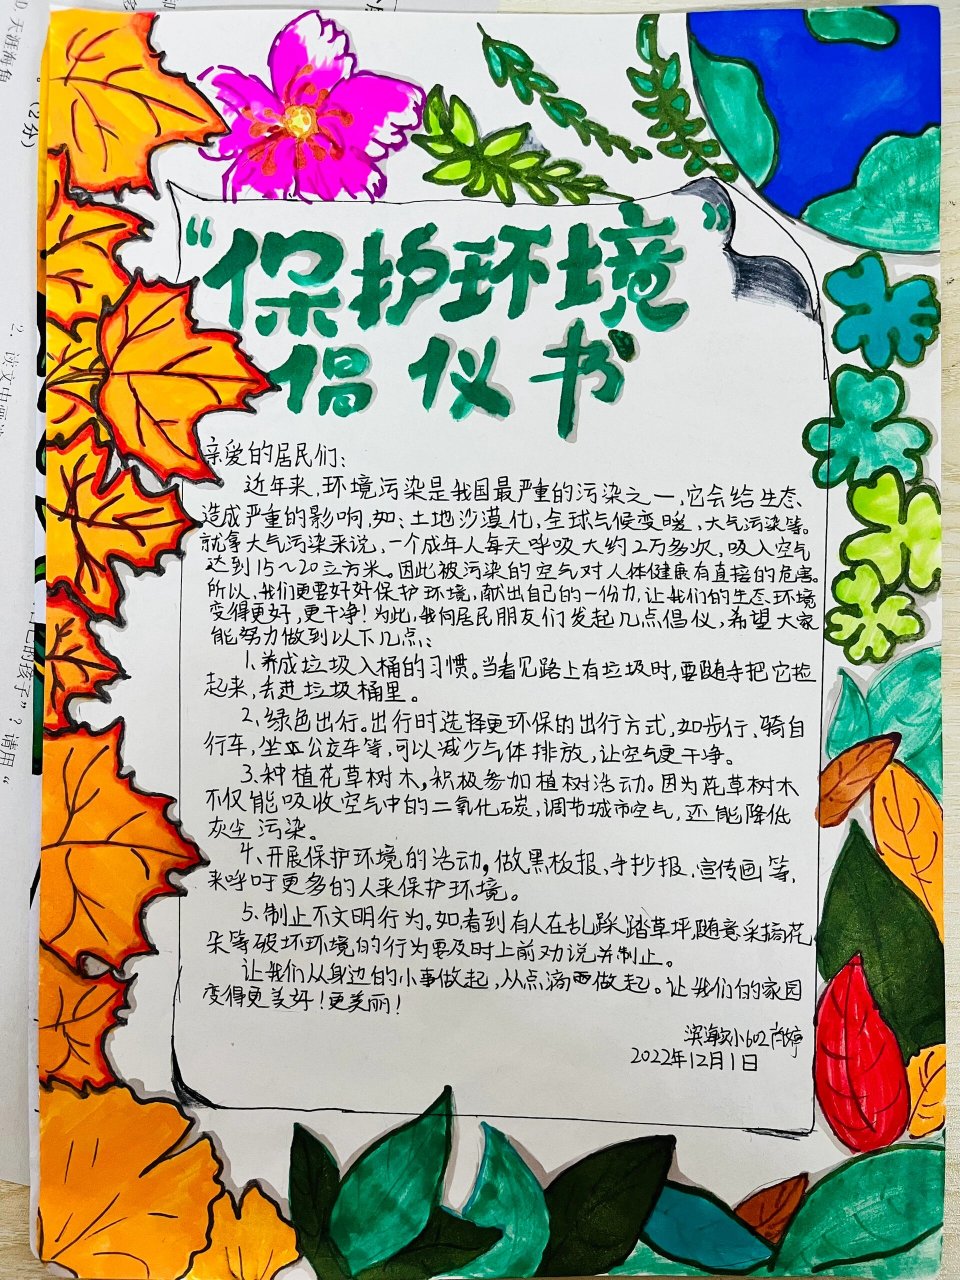 “保护环境”
倡仪书
亲爱的居民们：
近年来，环境污染是我国最严重的污染之一，它会给生态
造成严重的影响，如：土地沙漠化，全球气候变暖，大气污染等。
就拿大气污染来说，一个成年人每天呼吸大约2万多次，吸入空气
达到15～20立方米。因此被污染的空气对人体健康有直接的危害。
所以，我们更要好好保护环境，献出自己的一份力，让我们的生态环境
变得更好，更干净！为此，我向居民朋友们发起几点倡仪，希望大家
能努力做到以下几点：
1.养成垃圾入桶的习惯。当看见路上有垃圾时，要随手把它捡
起来，丢进垃圾桶里。
2、绿色出行。出行时选择更环保的出行方式，如步行、骑自
行车，坐公交车等，可以减少气体排放，让空气更干净。
3.种植花草树木，积极参加植树活动。因为花草树木
不仅能吸收空气中的二氧化碳，调节城市空气，还能降低
灰尘污染。
4、开展保护环境的活动，做黑板报、手抄报、宣传画等，
来呼吁更多的人来保护环境。
5、制止不文明行为。如，看到有人在乱踩踏草坪，随意采摘花
朵等破坏环境的行为要及时上前劝说并制止。
让我们从身边的小事做起，从点滴做起。让我们的家园
变得更美好！更美丽！
602
2022年12月1日
0.天涯海角
(2分)
的孩子”？请用“